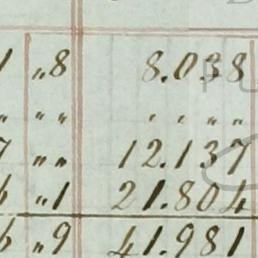 1 „8 8.038
„ „„ . . „„
7 „„ 12.137
6 „1 21.804
6 „9 41.981